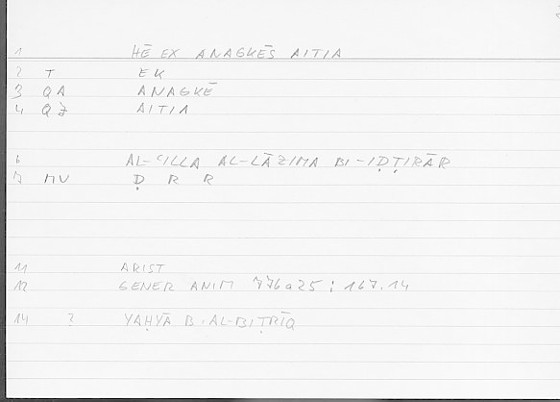 1 HĒ EX ANAGKĒS AITIA
2 T EK
3 QA ANAGKĒ
4 QZ AITIA
6 AL-ʿILLA AL-LĀZIMA BI-IḌṬIRĀR
7 MU Ḍ R R
11 ARIST
12 GENER ANIM 776a25 ; 167.14
14 ? YAḤYĀ B. AL-BIṬRĪQ